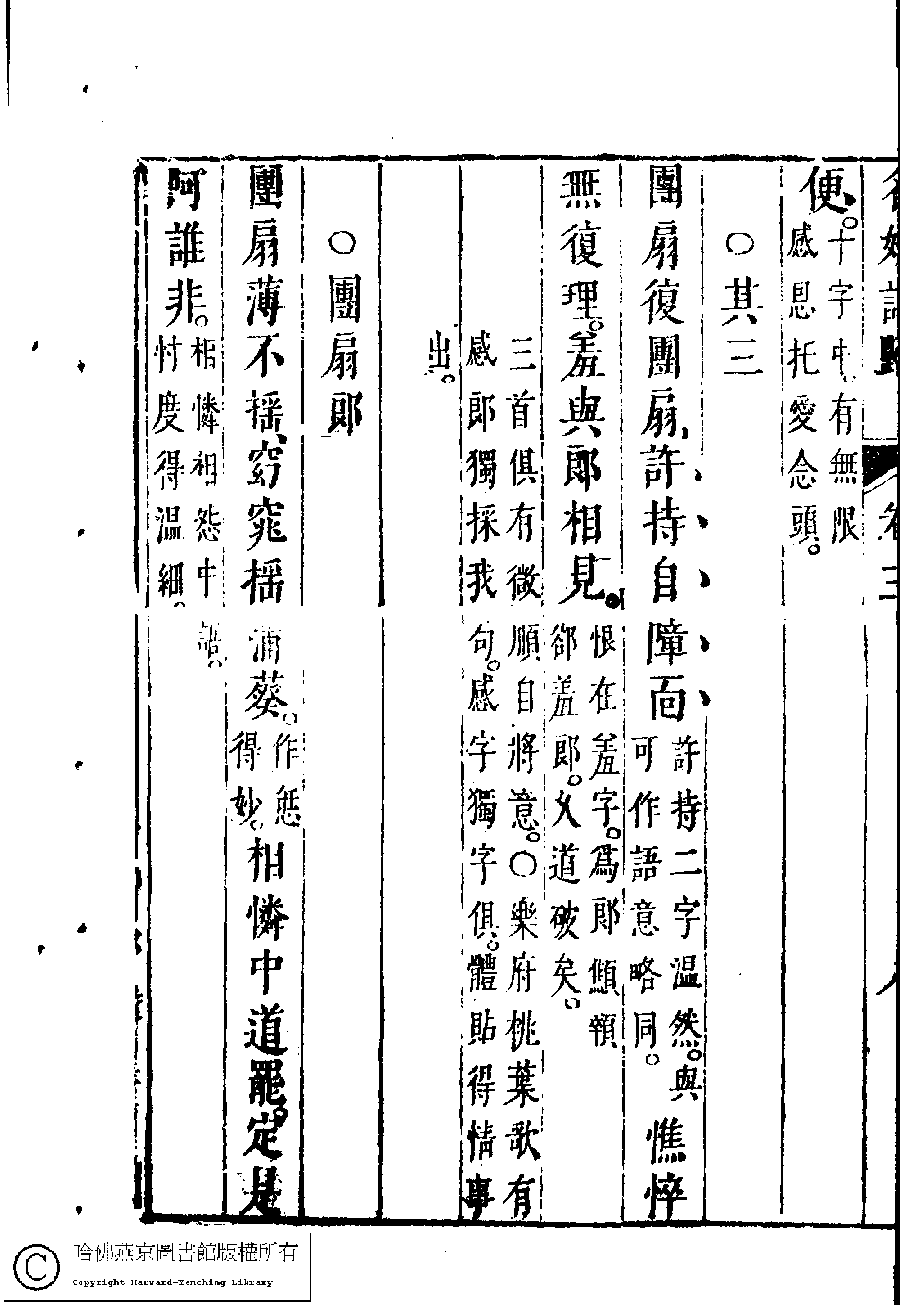 便。十字中。有無限
感恩托愛念頭。
○其三
團扇復團扇、許持自障面許持二字溫然。與可作語意略同。憔悴
無復理。羞與郎相見。恨在羞字。爲郎顦顇郤羞郎。又道破矣。
三首俱有微順自將意。○樂府桃葉歌有
感郎獨採我句。感字獨字俱。體貼得情事
出。
○團扇郎
團扇薄不搖、窈窕搖蒲葵。作態得妙。相憐中道罷。定是
阿誰非。相憐相怨中語。忖度得溫細。
哈佛燕京圖書館版權所有
Copyright Harvard-Yenching Library